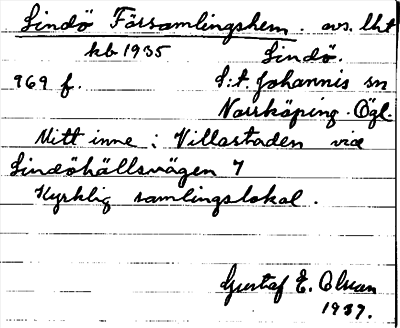 Lindö Församlingshem. avs. lht
kb 1935 Lindö.
969 f. S:t. Johannis sn
Norrköping. Ögl.
Mitt inne i Villastaden vid
Lindöhällsvägen 7
Kyrklig samlingslokal.
Gustaf E. Olsson
1937.